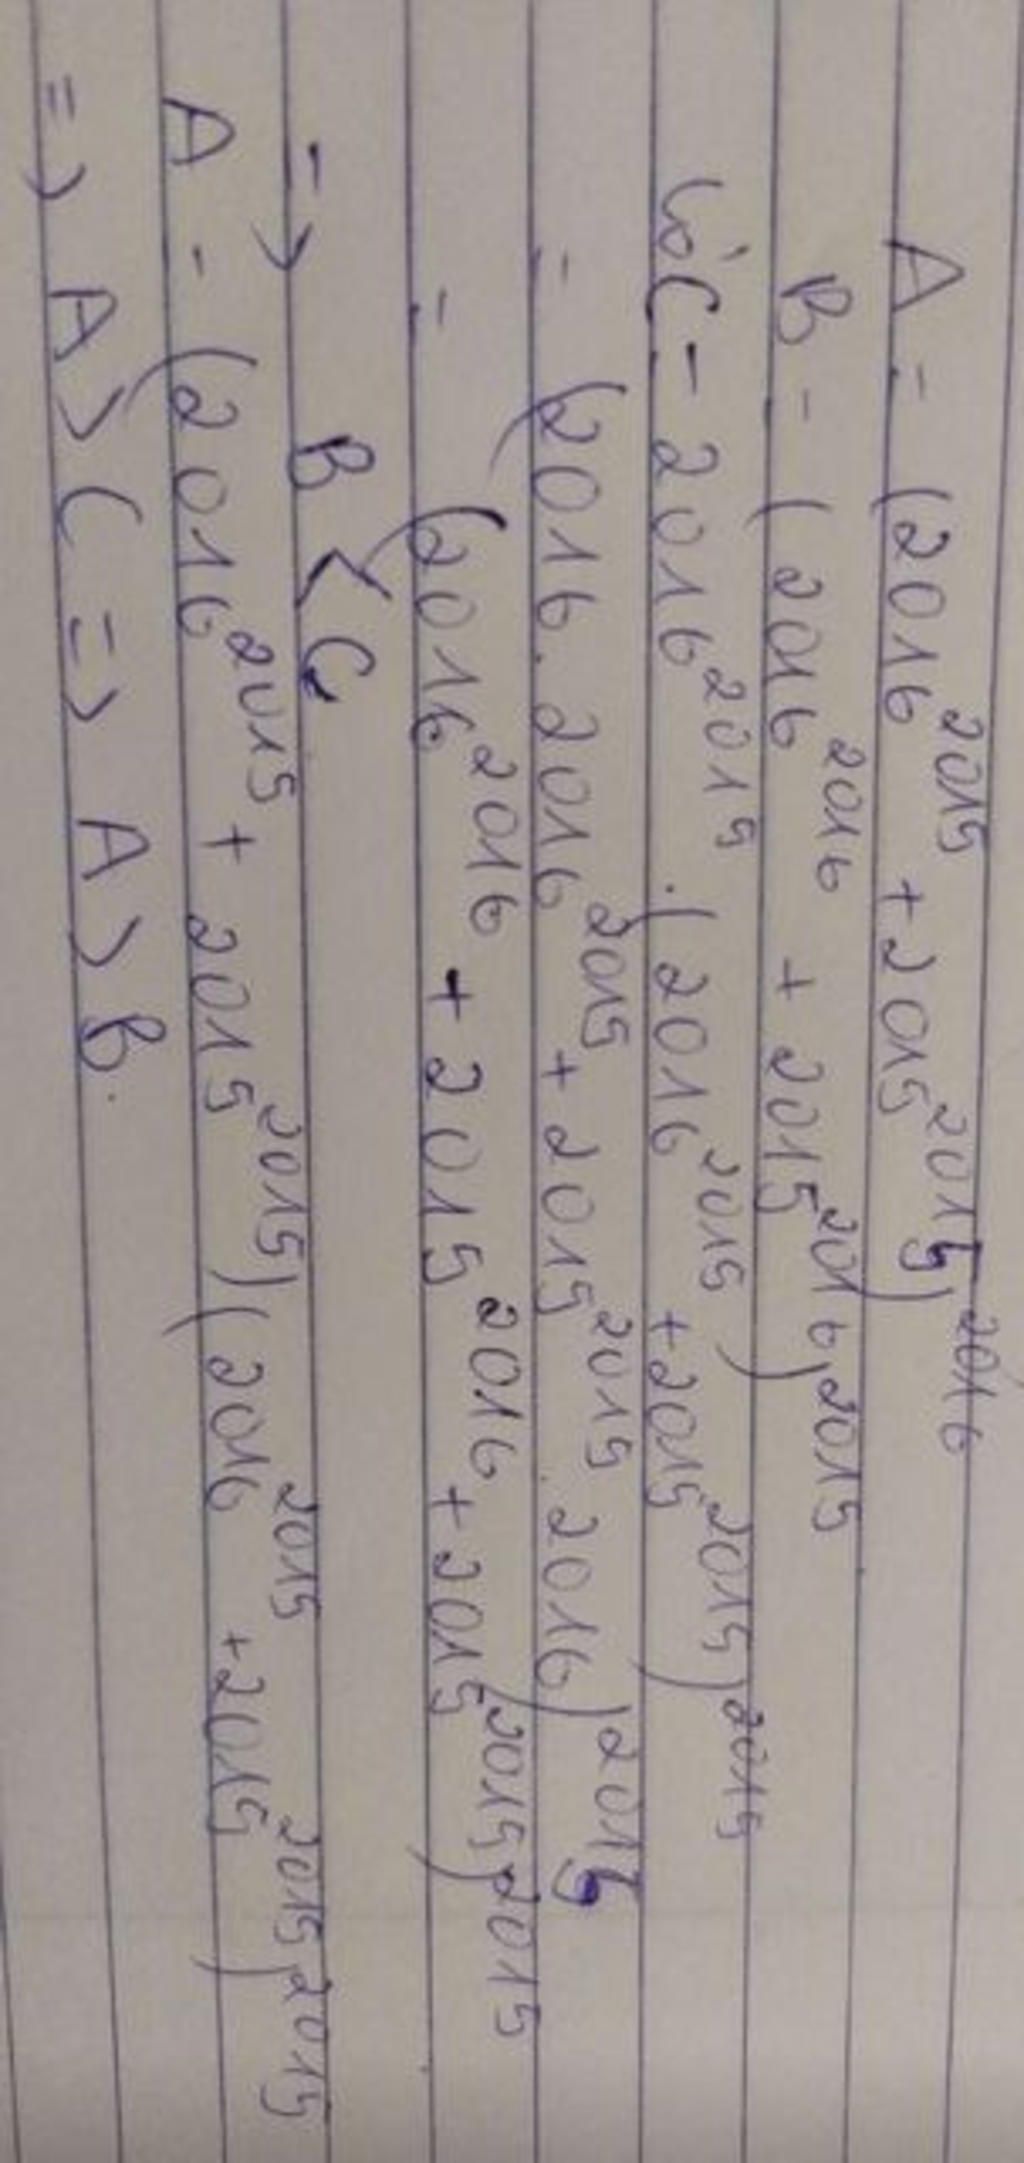 A = (2016^2015 + 2015^2015)^2016
B = (2016^2016 + 2015^2016)^2015
có C = 2016^2015 . (2016^2015 + 2015^2015)^2015
= (2016 . 2016^2015 + 2015^2015 . 2016)^2015
= (2016^2016 + 2015^2016 + 2015^2015)^2015
=> B < C
A = (2016^2015 + 2015^2015) (2016^2015 + 2015^2015)^2015
=> A > C => A > B.